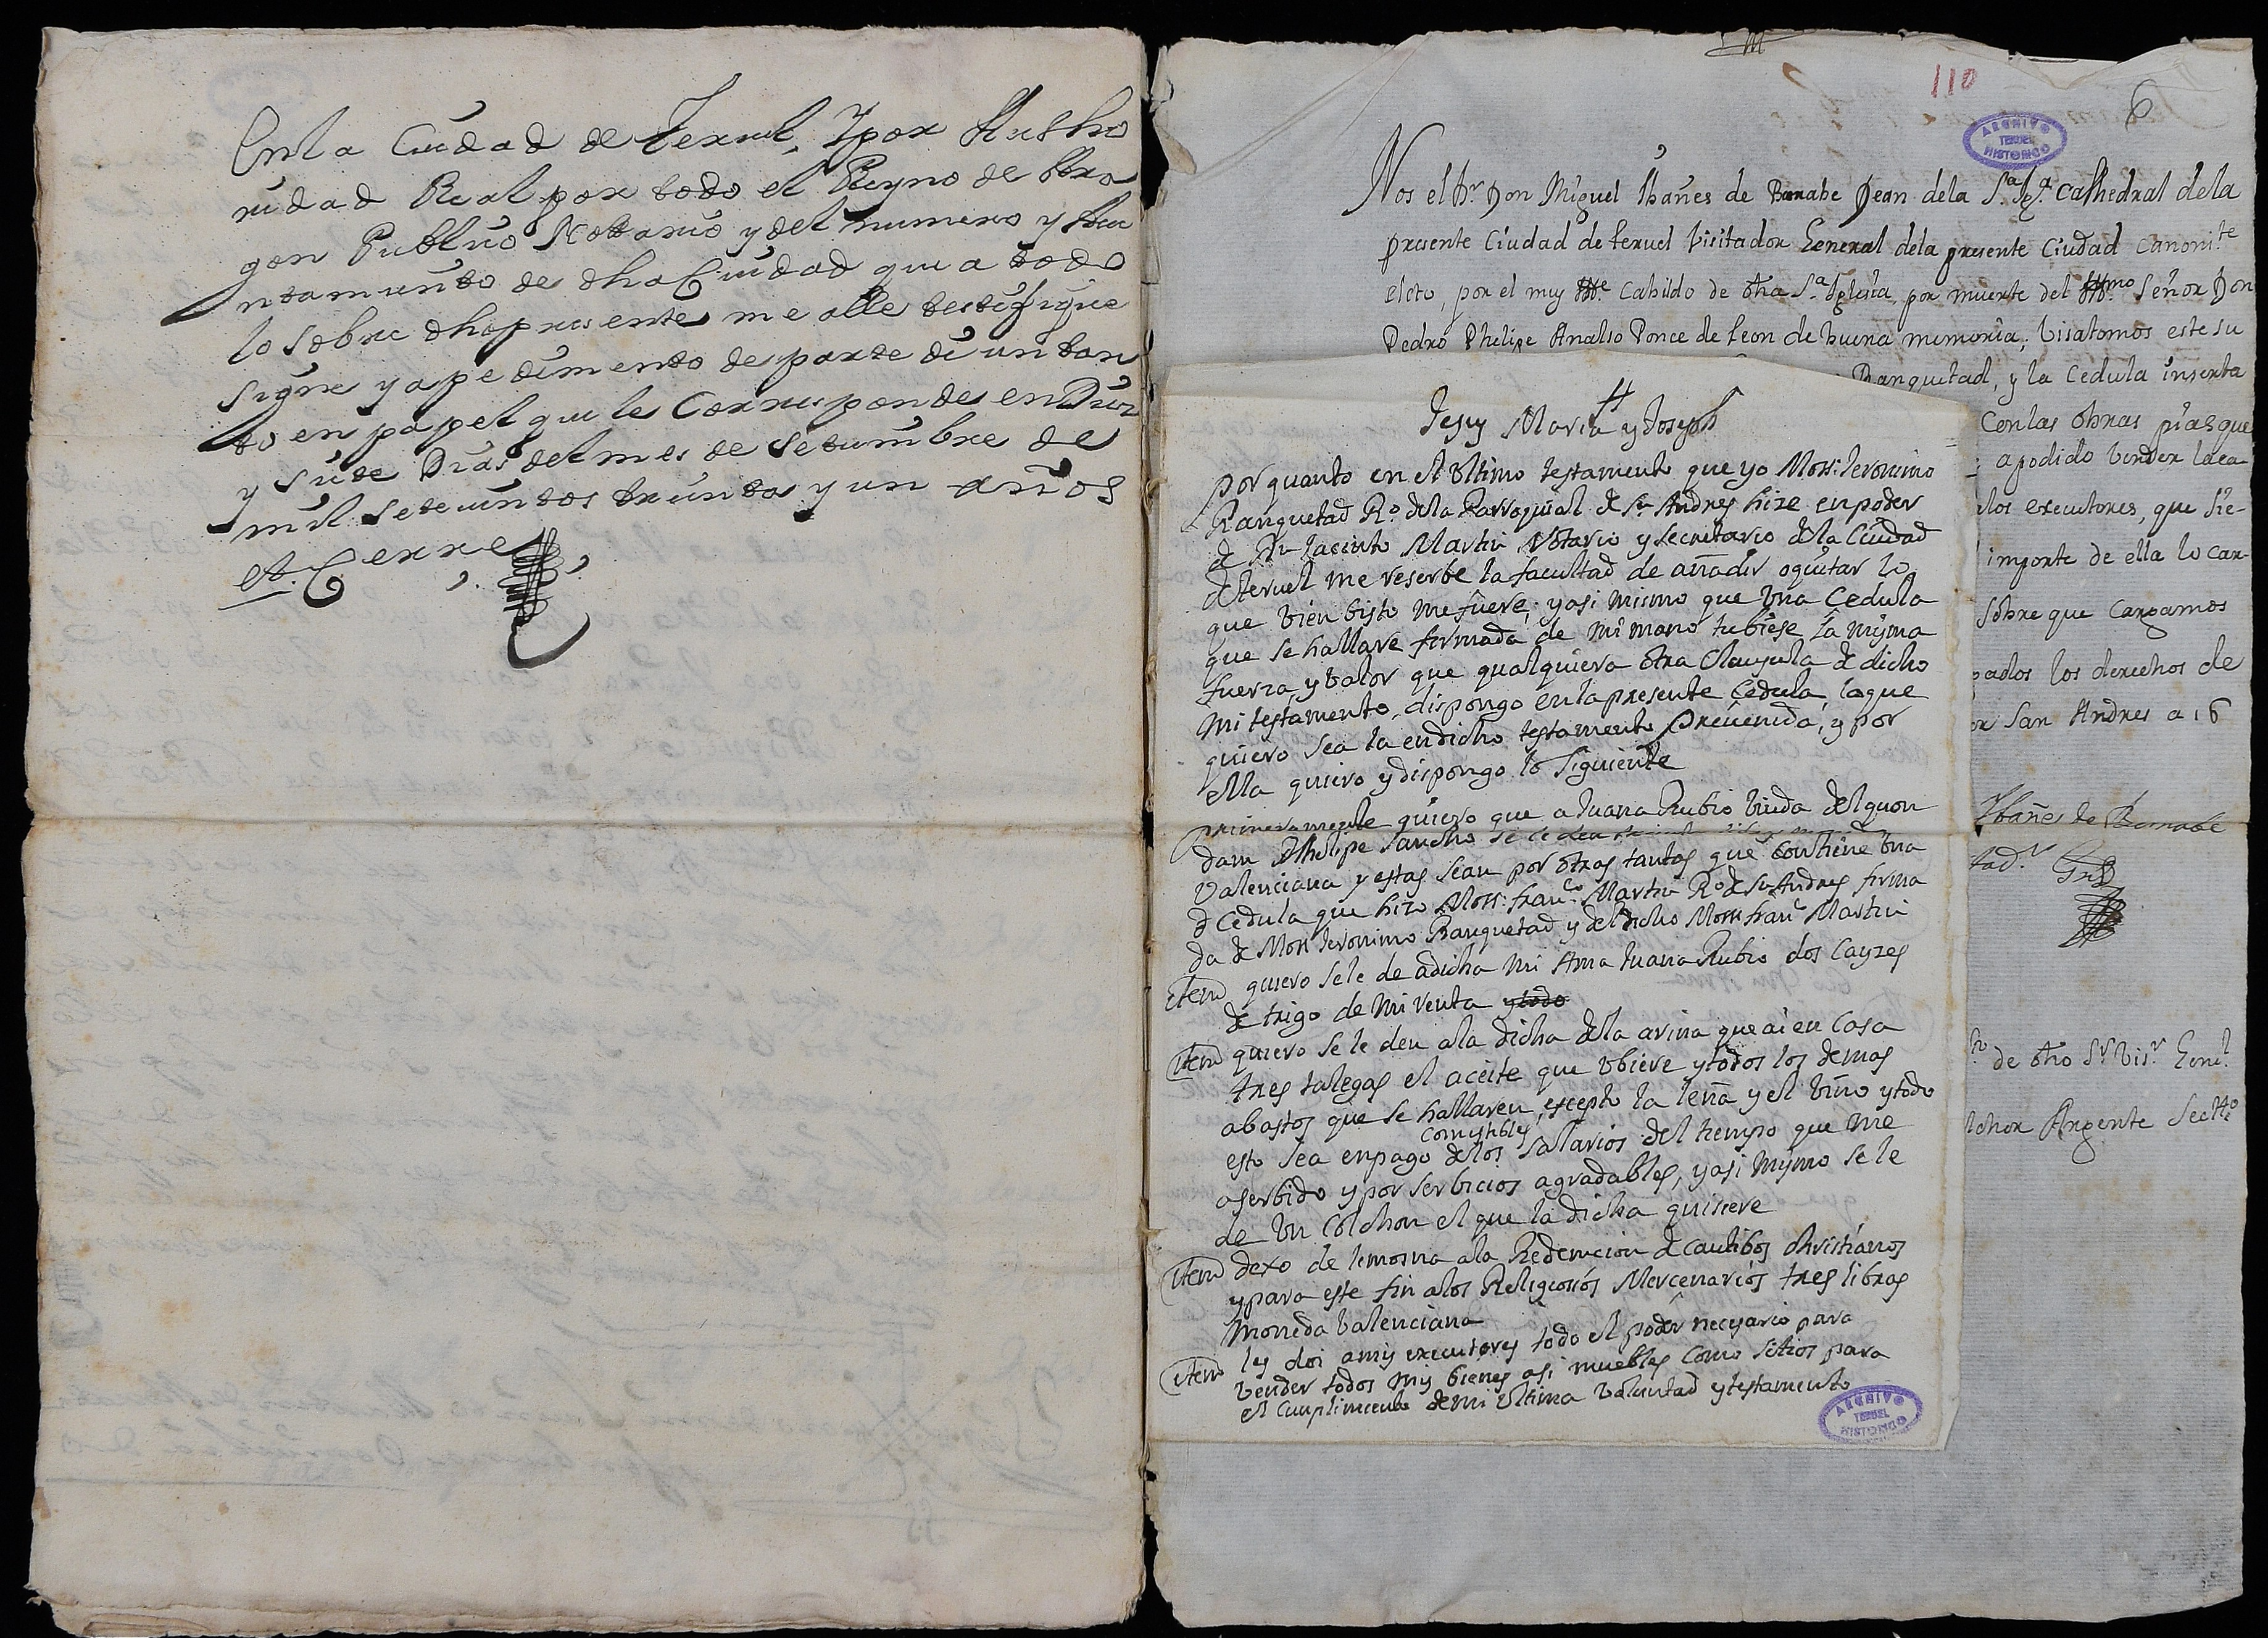 En la Ciudad de Teruel, Y por Autho
ridad Real por todo el Reyno de Ara
gon Publico Nottario y del numero y Aiun
tamiento de dha Ciudad que a todo
lo sobre dho presente me alle testifique
signe y a pedimiento de parte di un tan
to en papel que le Corresponde en Diez
y siete Dias del mes de Setiembre de
mil setecientos treinta y un años
et. Cerre
110
6
ARCHIVO
TERUEL
HISTORICO
Nos el Dr. Don Miguel Ibañes de Barnabe Dean dela Sta. Iga. Cathedral dela
presente Ciudad de Teruel Visitador General dela presente Ciudad Canonite
electo, por el muy Ille. Cabildo de dha Sa. Iglesia, por muerte del Illmo Señor Don
Pedro Phelipe Analso Ponce de Leon de buena memoria; Visatamos este su
Ranquetad, y la Cedula inserta
Con las obras pias que
a podido Vender la ca
los executores, que sie-
importe de ella lo car-
Sobre que Cargamos
pados los derechos de
or San Andres a 16
Ybañes de Barnabe
tad.r Gnl
de dho Sr. Visr. Genel.
lchor Argente Secrto
Jesus Maria y Joseph
por quanto en el Vltimo testamento que yo Mosn. Jeronimo
Ranquetad Ro. dela Parroquial de Sn Andres hize en poder
de Jn Jacinto Martin Notario y Secretario dela Ciudad
de Teruel me reserbe la facultad de añadir o quitar lo
que bien bisto me fuere; y asi mismo que Vna Cedula
que se hallare firmada de mi mano tubiese la misma
fuerza y Valor que qualquiera otra Clausula de dicho
mi testamento, dispongo en la presente Cedula, la que
quiero sea la en dicho testamento prevenida, y por
ella quiero y dispongo lo Siguiente
primeramente quiero que a Juana Rubio biuda del quon
dam Phelipe Sancho se le den
Valenciana y estas sean por otras tantas que contiene Vna
de Cedula que hizo Mosn. franco. Martin Ro. de Sn Andres firma
da de Mosn Jeronimo Ranquetad y del dicho Mosn franc Martin
item quiero se le de a dicha mi Ama Juana Rubio dos Cayzes
de trigo de mi renta y todo
item quiero se le den a la dicha dela arina que ai en Casa
tres talegas el aceite que Vbiere y todos los demas
abastos que se hallaren, escepto la leña y el bino y todo
comestibles
esto sea en pago delos Salarios del tiempo que me
a serbido y por serbicios agradables, y asi mismo se le
de Vn Colchon el que la dicha quisiere
item dexo de limosna ala Redencion de cautibos christianos
y para este fin alos Religiosos Mercenarios tres libras
moneda Valenciana
item les doi a mis executores todo el poder necesario para
vender todos mis bienes asi muebles como sitios para
el Cumplimiento de mi Vltima Voluntad y testamento
ARCHIVO
TERUEL
HISTORICO